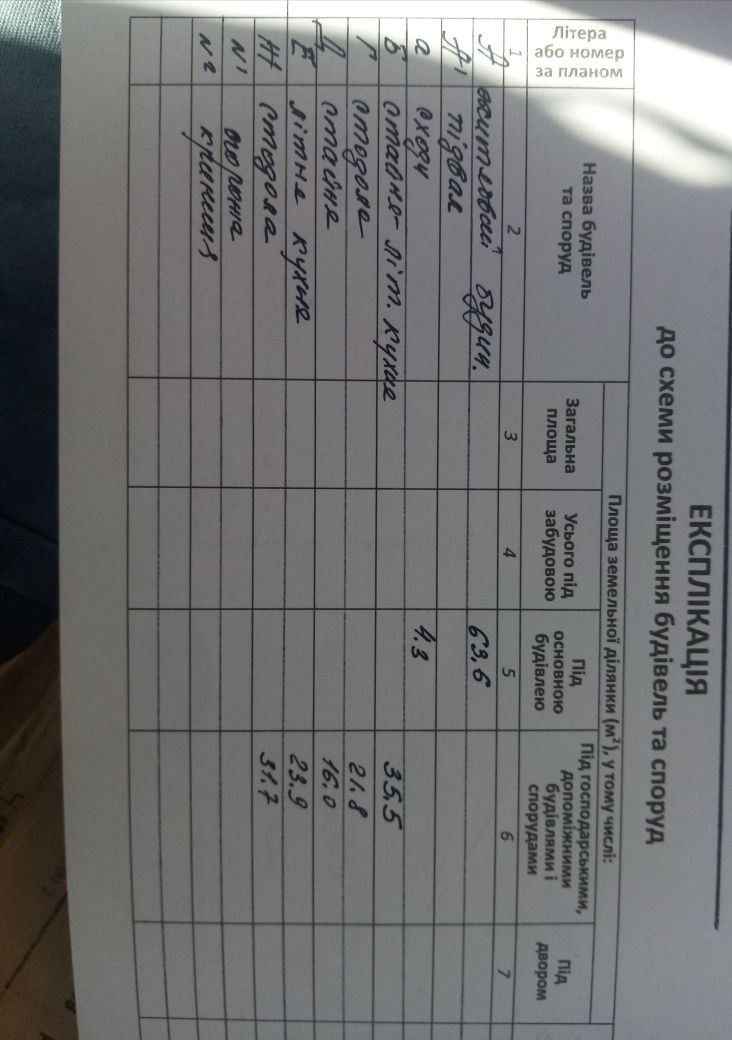 ЕКСПЛІКАЦІЯ
до схеми розміщення будівель та споруд
Літера або номер за планом
Назва будівель та споруд
Площа земельної ділянки (м²), у тому числі:
Загальна площа
Усього під забудовою
Під основною будівлею
Під господарськими, допоміжними будівлями і спорудами
Під двором
1 2 3 4 5 6 7
А житловий будин. 63,6
А' підвал
а входи 4.3
Б стайня-літ. кухня 35,5
Г стодола 21.8
Д стайня 16.0
Е літня кухня 23.9
Ж стодола 31.7
№1 огорожа
№2 криниця